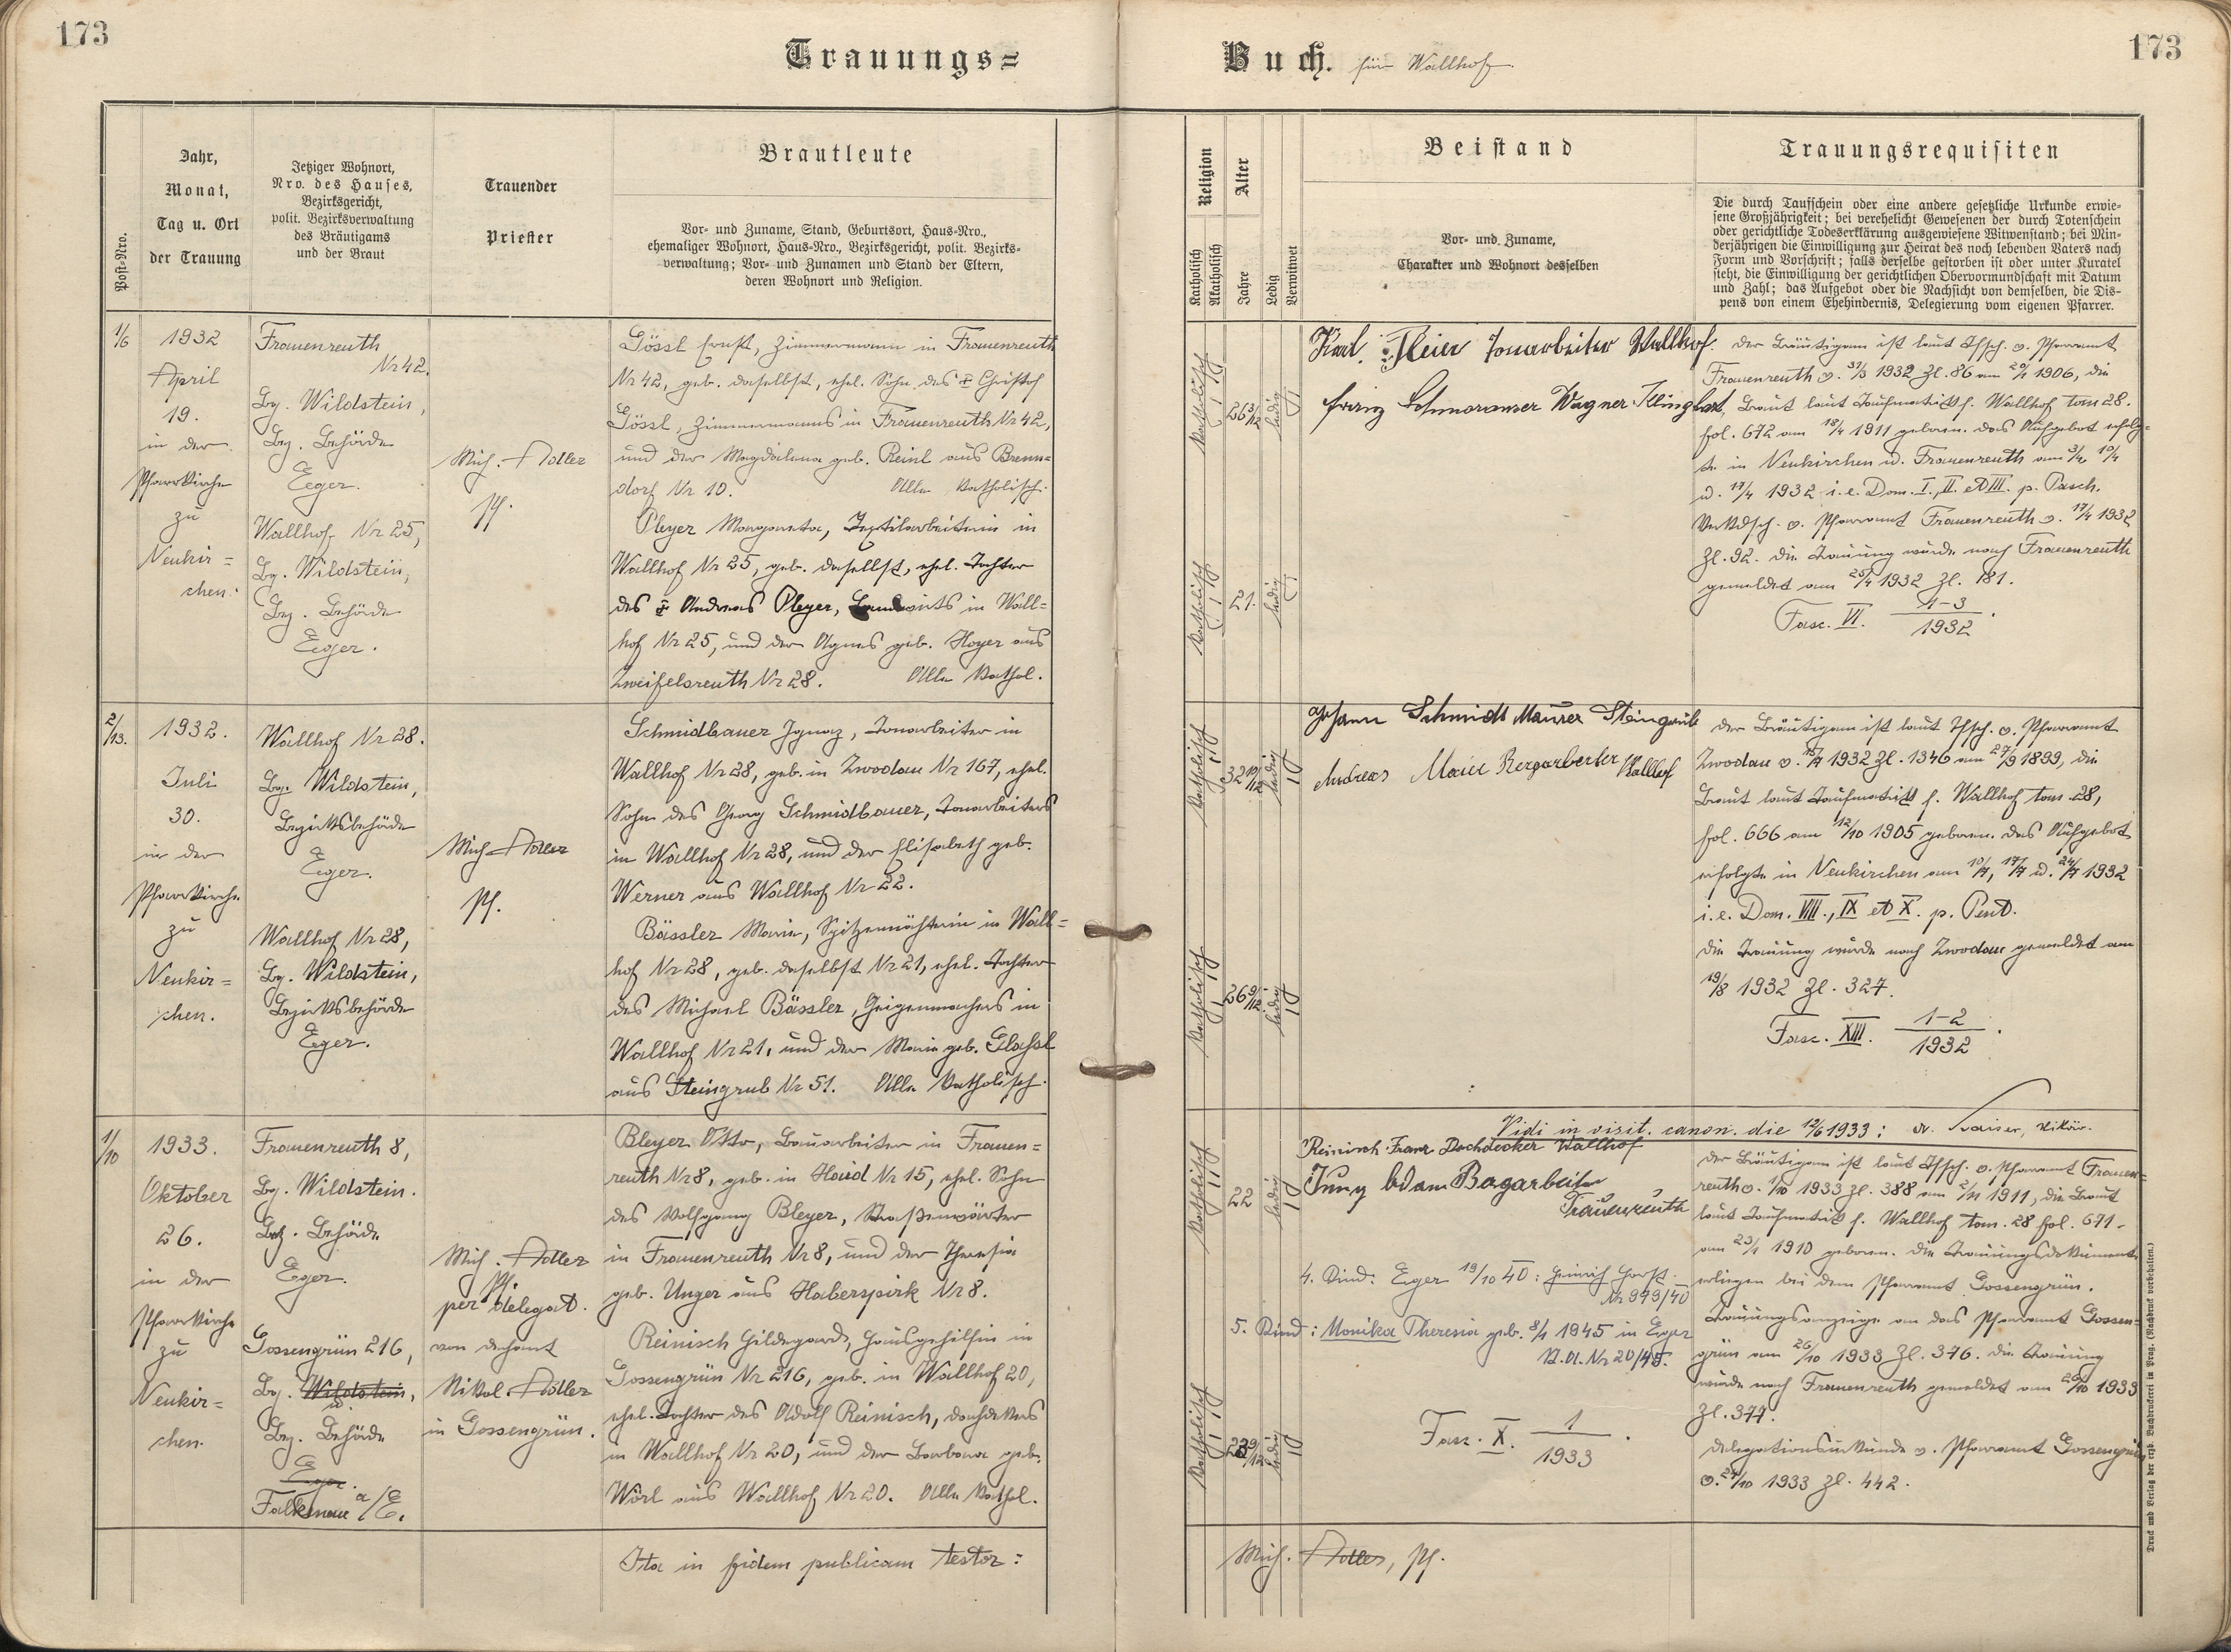 173
Trauungs=
Buch. für Wallhof.
173
Post-Nro.
Jahr,
Monat,
Tag u. Ort
der Trauung
Jetziger Wohnort,
Nro. des Hauses,
Bezirksgericht,
polit. Bezirksverwaltung
des Bräutigams
und der Braut
Trauender
Priester
Brautleute
Vor- und Zuname, Stand, Geburtsort, Haus-Nro.,
ehemaliger Wohnort, Haus-Nro., Bezirksgericht, polit. Bezirks-
verwaltung; Vor- und Zunamen und Stand der Eltern,
deren Wohnort und Religion.
Religion
Katholisch
Akatholisch
Alter
Jahre
Ledig
Verwitwet
Beistand
Vor- und Zuname,
Charakter und Wohnort desselben
Trauungsrequisiten
Die durch Taufschein oder eine andere gesetzliche Urkunde erwie-
sene Großjährigkeit; bei verehelicht Gewesenen der durch Totenschein
oder gerichtliche Todeserklärung ausgewiesene Witwenstand; bei Min-
derjährigen die Einwilligung zur Heirat des noch lebenden Vaters nach
Form und Vorschrift; falls derselbe gestorben ist oder unter Kuratel
steht, die Einwilligung der gerichtlichen Obervormundschaft mit Datum
und Zahl; das Aufgebot oder die Nachsicht von demselben, die Dis-
pens von einem Ehehindernis, Delegierung vom eigenen Pfarrer.
1/6
1932
April
19.
in der
Pfarrkirche
zu
Neukir=
chen.
Frauenreuth
Nr 42.
Bg. Wildstein,
Bez. Behörde
Eger.
Wallhof Nr 25,
Bg. Wildstein,
Bez. Behörde
Eger.
Mich. Adler
Pf.
Gössl Ernst, Zimmermann in Frauenreuth
Nr 42, geb. daselbst, ehel. Sohn des ☦ Christof
Gössl, Zimmermanns in Frauenreuth Nr 42,
und der Magdalena geb. Reinl aus Brenn=
dorf Nr 10. Alle katholisch.
Pleyer Margareta, Textilarbeiterin in
Wallhof Nr 25, geb. daselbst, ehel. Tochter
des ☦ Andreas Pleyer, Landwirts in Wall=
hof Nr 25, und der Agnes geb. Hoyer aus
Zweifelsreuth Nr 28. Alle kathol.
katholisch
26 3/12
ledig
katholisch
21.
ledig
Karl Tonarbeiter Wallhof.
Wagner Klinghart
Der Bräutigam ist laut Tfsch. v. Pfarramt
Frauenreuth v. 31/3 1932 Zl. 86 am 20/1 1906, die
Braut laut Taufmatrik f. Wallhof tom 28.
fol. 672 am 18/4 1911 geboren. Das Aufgebot erfolg=
te in Neukirchen u. Frauenreuth am 3/4, 10/4
u. 17/4 1932 i. e. Dom. I., II. et III. p. Pasch.
Verkdsch. v. Pfarramt Frauenreuth v. 17/4 1932
Zl. 92. Die Trauung wurde nach Frauenreuth
gemeldet am 25/4 1932 Zl. 181.
Fasc. VI. 1-3/1932.
2/13.
1932.
Juli
30.
in der
Pfarrkirche
zu
Neukir=
chen.
Wallhof Nr 28.
Bg. Wildstein,
Bezirksbehörde
Eger.
Wallhof Nr 28,
Bg. Wildstein,
Bezirksbehörde
Eger.
Mich. Adler
Pf.
Schmidbauer Ignaz, Tonarbeiter in
Wallhof Nr 28, geb. in Zwodau Nr 167, ehel.
Sohn des Georg Schmidbauer, Tonarbeiters
in Wallhof Nr 28, und der Elisabeth geb.
Werner aus Wallhof Nr 22.
Bässler Maria, Spitzennähterin in Wall=
hof Nr 28, geb. daselbst Nr 21, ehel. Tochter
des Michael Bässler, Geigenmachers in
Wallhof Nr 21, und der Maria geb. Glassl
aus Steingrub Nr 51. Alle katholisch.
katholisch
32 10/12
ledig
katholisch
26 9/12
ledig
Johann Schmidt Maurer Steingrub
Andreas Maier Bergarbeiter Wallhof
Der Bräutigam ist laut Tfsch. v. Pfarramt
Zwodau v. 15/7 1932 Zl. 1346 am 27/9 1899, die
Braut laut Taufmatrik f. Wallhof tom. 28,
fol. 666 am 12/10 1905 geboren. Das Aufgebot
erfolgte in Neukirchen am 10/7, 17/7 u. 24/7 1932
i. e. Dom. VIII., IX et X. p. Pent.
Die Trauung wurde nach Zwodau gemeldet am
19/8 1932 Zl. 327.
Fasc. XIII. 1-2/1932.
Vidi in visit. canon. die 12/6 1933:
1/10
1933.
Oktober
26.
in der
Pfarrkirche
zu
Neukir=
chen.
Frauenreuth 8,
Bg. Wildstein.
Bez. Behörde
Eger.
Gossengrün 216,
Bg. Wildstein,
Bez. Behörde
Eger.
Falkenau a/E.
Mich. Adler
Pf.
per delegat.
von Dechant
Nikol. Adler
in Gossengrün.
Bleyer Otto, Bauarbeiter in Frauen=
reuth Nr 8, geb. in Haid Nr 15, ehel. Sohn
des Wolfgang Bleyer, Straßenwärter
in Frauenreuth Nr 8, und der Theresia
geb. Unger aus Haberspirk Nr 8.
Reinisch Hildegard, Hausgehilfin in
Gossengrün Nr 216, geb. in Wallhof 20,
ehel. Tochter des Adolf Reinisch, Dachdeckers
in Wallhof Nr 20, und der Barbara geb.
Wörl aus Wallhof Nr 20. Alle kathol.
katholisch
22
ledig
katholisch
23 9/12
ledig
Reinisch Franz Dachdecker Wallhof
Adam Bagarbeiter
Frauenreuth
4. Kind: Eger 19/10 40: Heinrich Horst.
Nr 949/40
5. Kind: Monika Theresia geb. 8/1 1945 in Eger
Nr 20/45.
Fasc. X. 1/1933.
Der Bräutigam ist laut Tfsch. v. Pfarramt Frauen=
reuth v. 1/10 1933 Zl. 388 am 2/11 1911, die Braut
laut Taufmatrik f. Wallhof tom. 28 fol. 671.
am 23/1 1910 geboren. Die Trauungsdokumente
erliegen bei dem Pfarramt Gossengrün.
Trauungsanzeige an das Pfarramt Gossen=
grün am 26/10 1933 Zl. 376. Die Trauung
wurde nach Frauenreuth gemeldet am 26/10 1933
Zl. 377.
Delegationsurkunde v. Pfarramt Gossengrün
v. 24/10 1933 Zl. 442.
Ita in fidem publicam testor:
Mich. Adler, Pf.
Druck und Verlag der erzb. Buchdruckerei in Prag. (Nachdruck vorbehalten.)